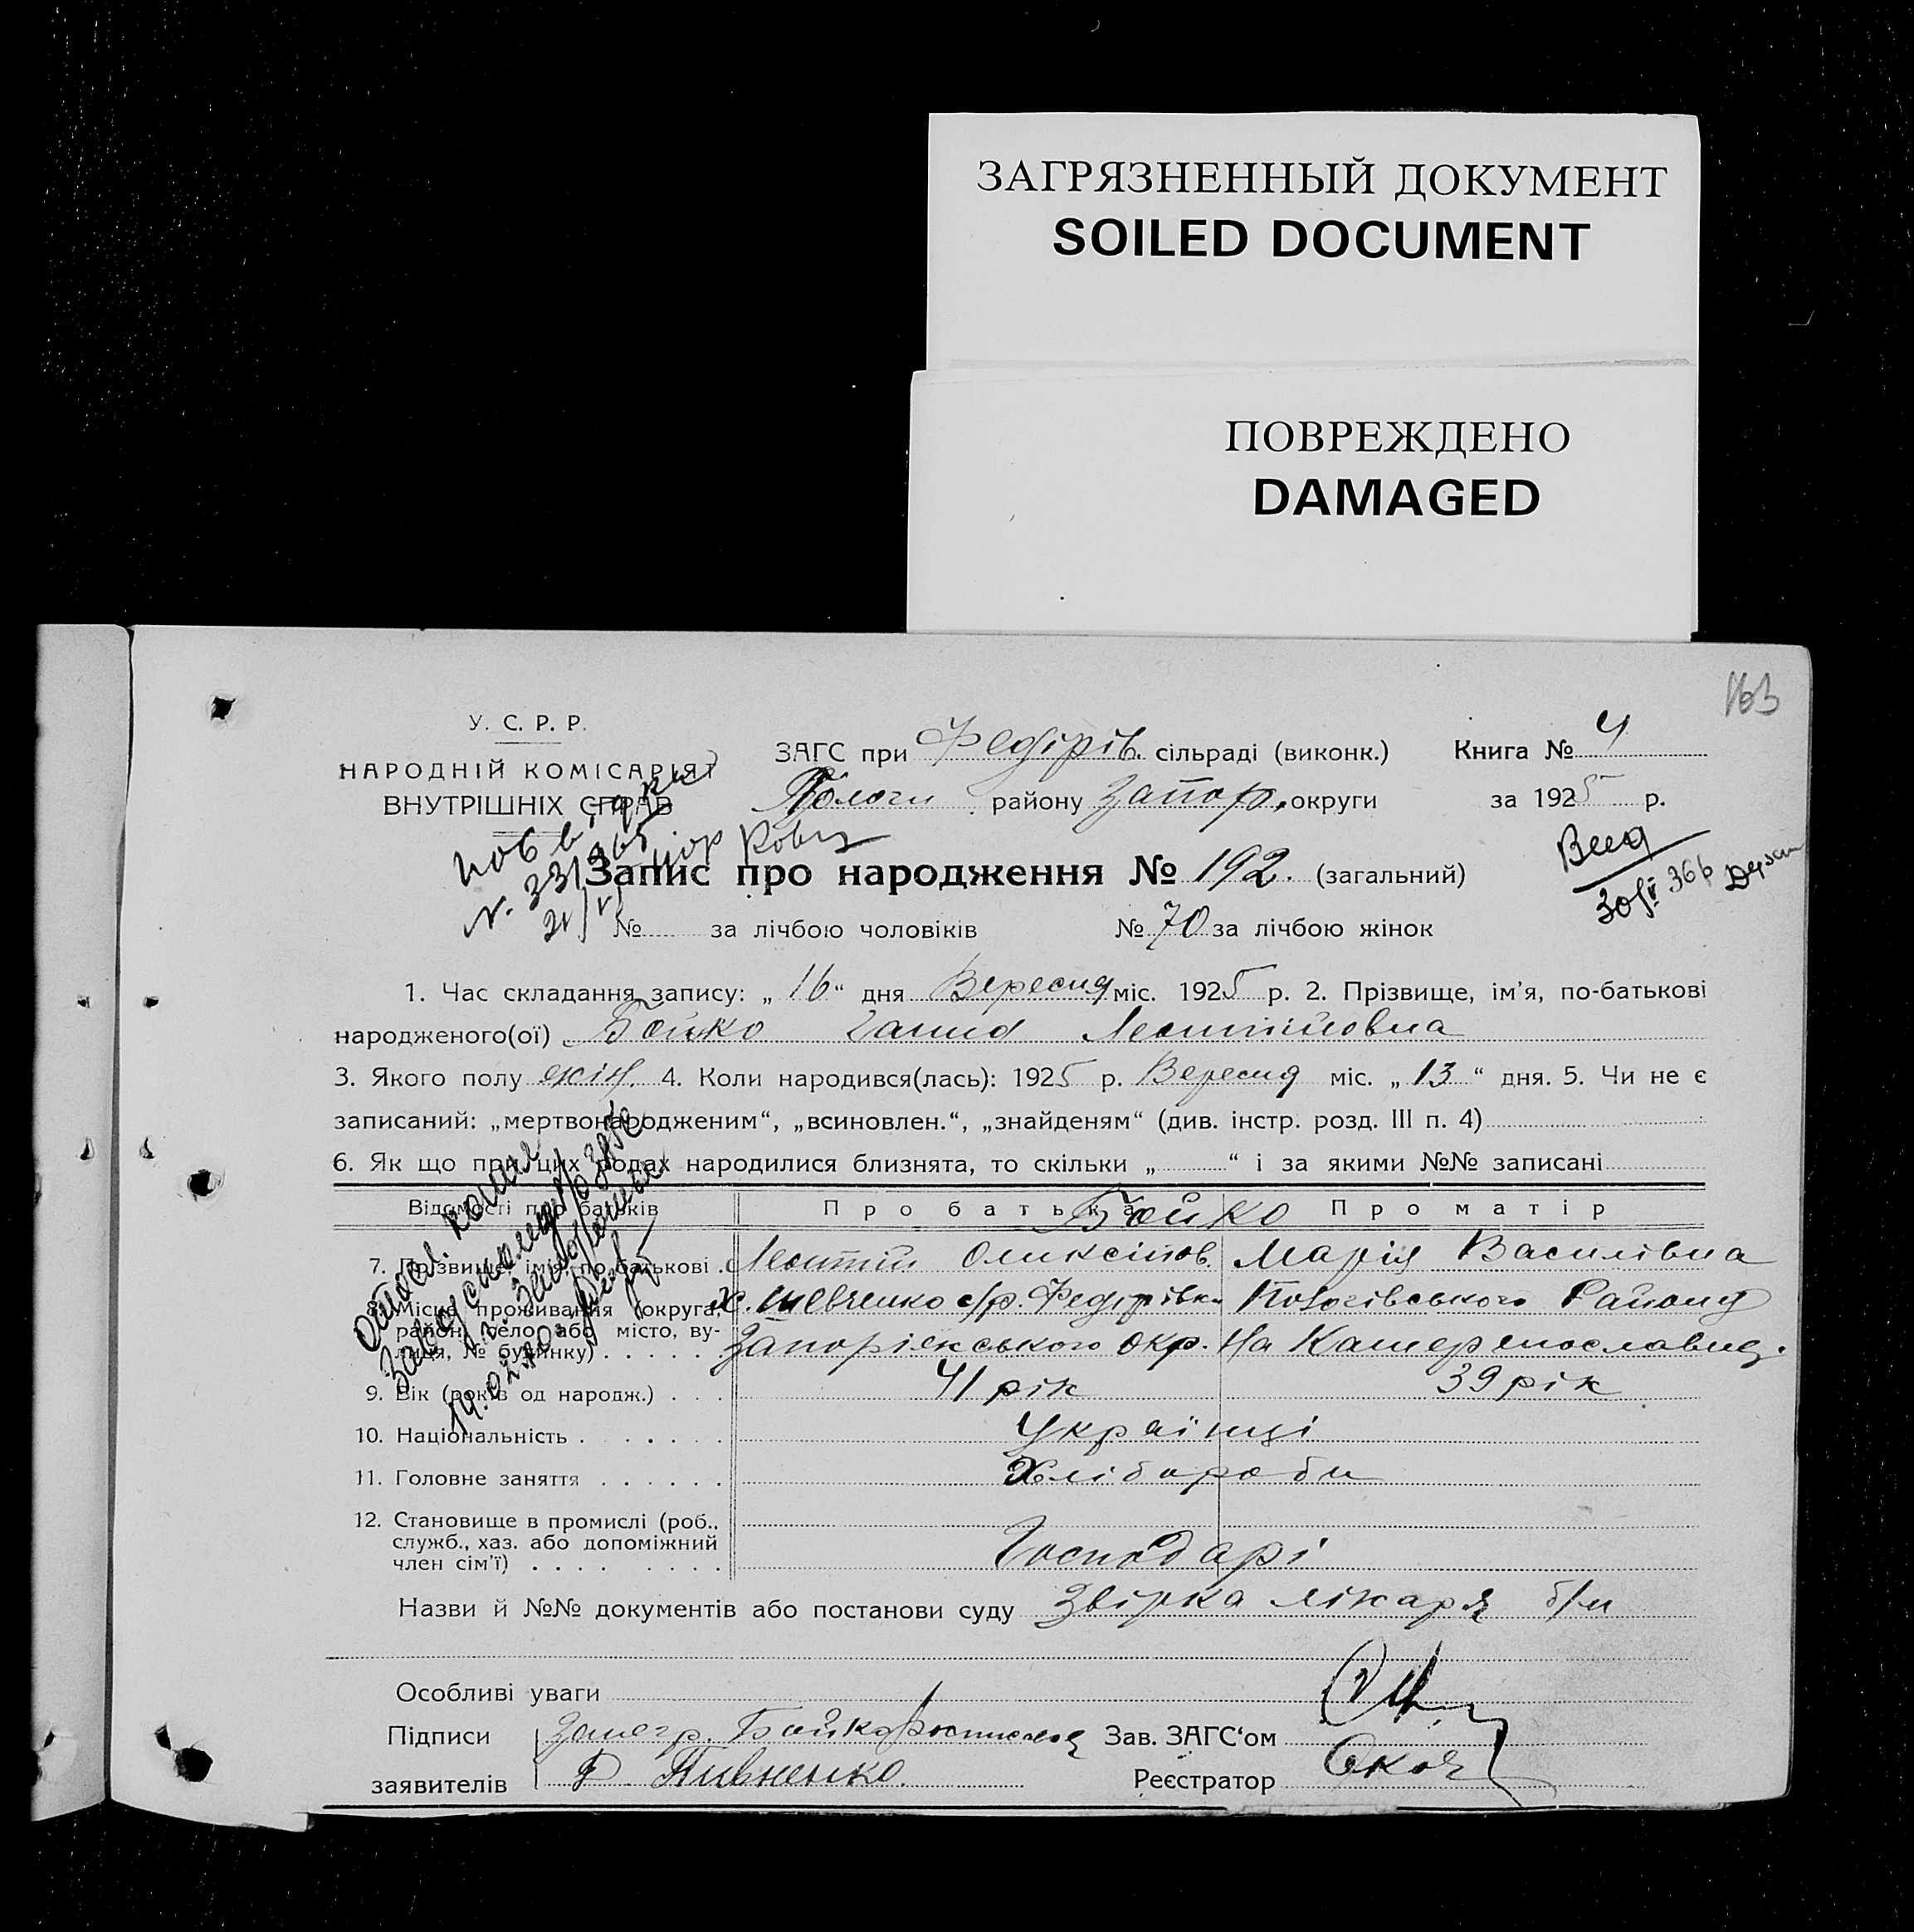 ЗАГРЯЗНЕННЫЙ ДОКУМЕНТ
SOILED DOCUMENT
ПОВРЕЖДЕНО
DAMAGED
163
У. С. Р. Р.
НАРОДНІЙ КОМІСАРІЯТ
ВНУТРІШНІХ СПРАВ
ЗАГС при Федірів. сільраді (виконк.) Книга № 4
Пологи району Запор. округи за 1925 р.
Запис про народження № 192. (загальний)
№ за лічбою чоловіків № 70 за лічбою жінок
1. Час складання запису: „ 16 “ дня Вересня міс. 1925 р. 2. Прізвище, ім’я, по-батькові
народженого(ої) Бойко Ганна Леонтійовна
3. Якого полу жін. 4. Коли народився(лась): 1925 р. Вересня міс. „ 13 “ дня. 5. Чи не є
записаний: „мертвонародженим“, „всиновлен.“, „знайденям“ (див. інстр. розд. III п. 4)
6. Як що при цих родах народилися близнята, то скільки „ “ і за якими №№ записані
Відомості про батьків Про батька Бойко Про матір
7. Прізвище, ім’я, по-батькові Леонтій Оликсійов. Марія Василівна
8. Місце проживання (округа, х. Шевченко с/р. Федірівки Пологівського Району
район, село, або місто, ву-
лиця, № будинку) Запоріжського Окр. На Катеринославщ.
9. Вік (років од народж.) 41 рік 39 рік
10. Національність Українці
11. Головне заняття Хлібороби
12. Становище в промислі (роб.,
служб., хаз. або допоміжний
член сім’ї) Господарі
Назви й №№ документів або постанови суду Звірка лікаря б/н
Особливі уваги
Підписи Бойко Зав. ЗАГС‘ом
заявителів Півненко Реєстратор